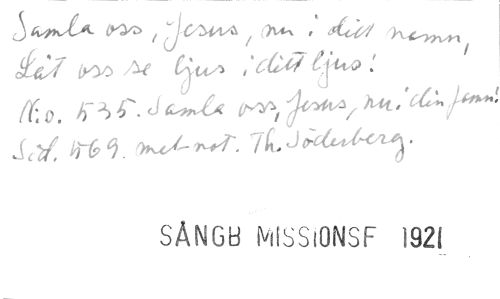 Samla oss, Jesus, nu i ditt namn,
Låt oss se ljus i ditt ljus!
N:o. 535. Samla oss, Jesus, nu i din famn!
Sid. 569. met not. Th. Söderberg.
SÅNGB MISSIONSF 1921